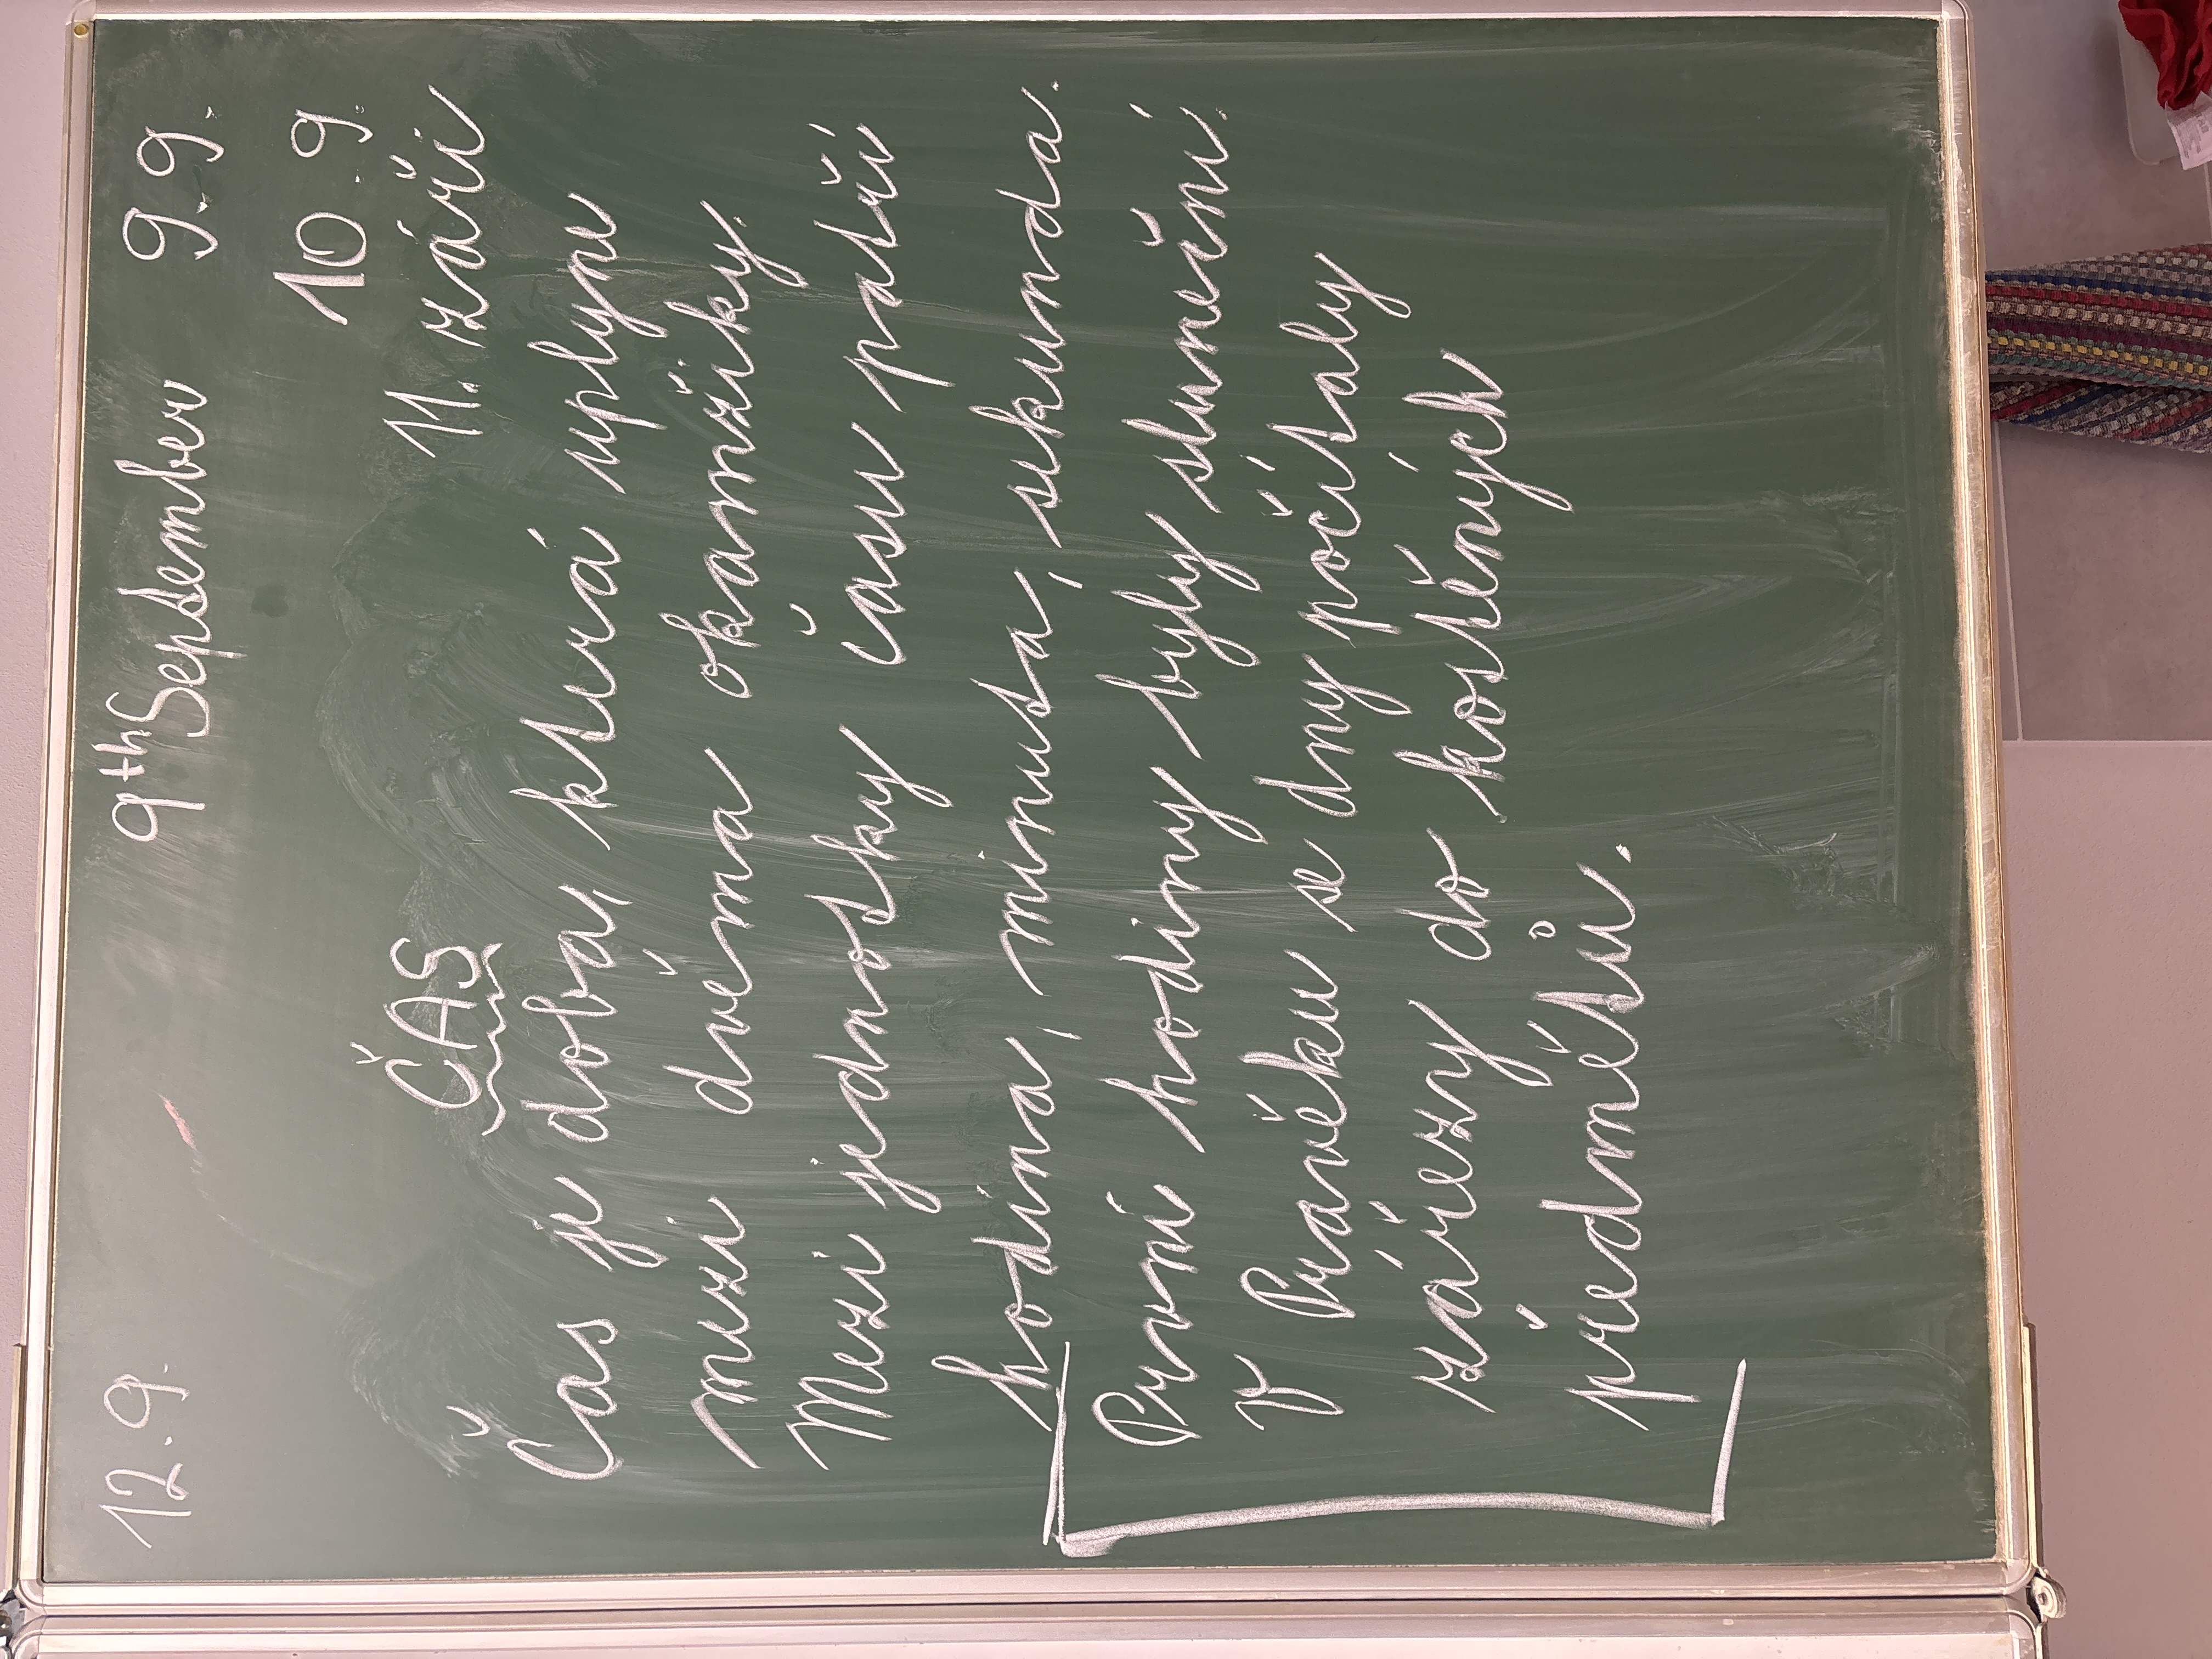 12.9. 9th September 9.9.
10.9.
ČAS 11. září
Čas je doba, která uplyne
mezi dvěma okamžiky.
Mezi jednotky času patří
hodina, minuta, sekunda.
První hodiny byly sluneční.
V Pravěku se dny počítaly
zářezy do kostěných
předmětů.